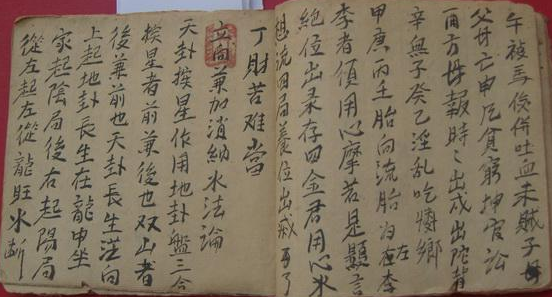 午被毒俊併吐血未賊子母
父母亡申厄貧窮押官訟
酉方毋報時々出戌出陀背
辛無子癸乙淫乱吃懶鄉
甲庚丙壬胎向流胎
李者須用心摩若是顯言
絕位出录存四金君用心水
流四局養位出
丁財苦难當
立向兼加消納水法論
天卦揆星作用地卦盤三合
揆星者前兼後也双山者
後兼前也天卦長生從向
上起地卦長生在龍申坐
家起陰局後右起陽局
從左起左從龍旺水断